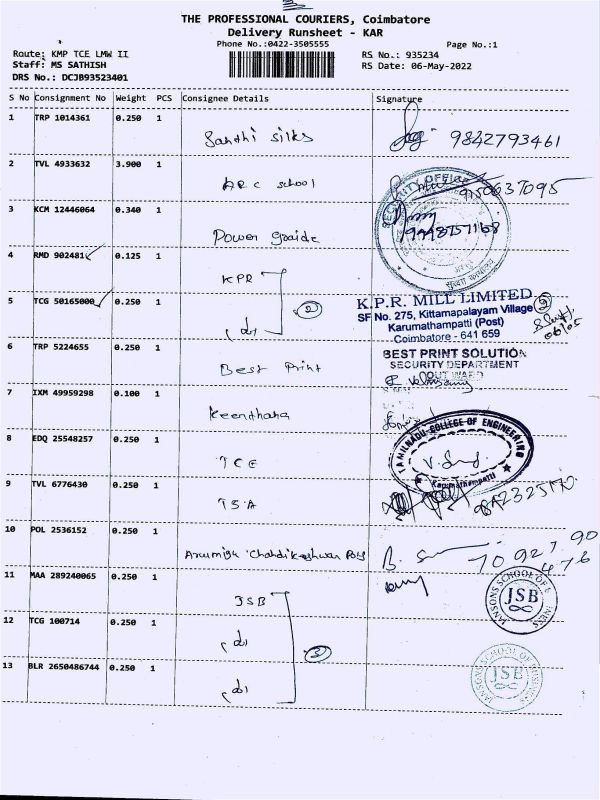 THE PROFESSIONAL COURIERS, Coimbatore
Delivery Runsheet - KAR
Phone No.:0422-3505555
Page No.:1
Route: KMP TCE LMW II
RS No.: 935234
Staff: MS SATHISH
RS Date: 06-May-2022
DRS No.: DCJB93523401
S No Consignment No Weight PCS Consignee Details Signature
1 TRP 1014361 0.250 1 Santhi silks 9842793461
2 TVL 4933632 3.900 1 ARC school 9150637095
3 KCM 12446064 0.340 1 Power
SECURITY OFFI
4 RMD 902481 0.125 1 KPR
5 TCG 50165000 0.250 1 do 2
K.P.R. MILL LIMITED
SF No. 275, Kittamapalayam Village
Karumathampatti (Post)
Coimbatore - 641 659
06/05
6 TRP 5224655 0.250 1 Best Print
BEST PRINT SOLUTION
SECURITY DEPARTMENT
OUT WARD
7 IXM 49959298 0.100 1 Keerthana
8 EDQ 25548257 0.250 1 TCE
TAMILNADU COLLEGE OF ENGINEERING
Karumathampatti
9 TVL 6776430 0.250 1 TSA
10 POL 2536152 0.250 1
11 MAA 289240065 0.250 1 JSB
JANSONS SCHOOL OF BUSINESS
JSB
12 TCG 100714 0.250 1 do 3
13 BLR 2650486744 0.250 1 do
JANSONS SCHOOL OF BUSINESS
JSB